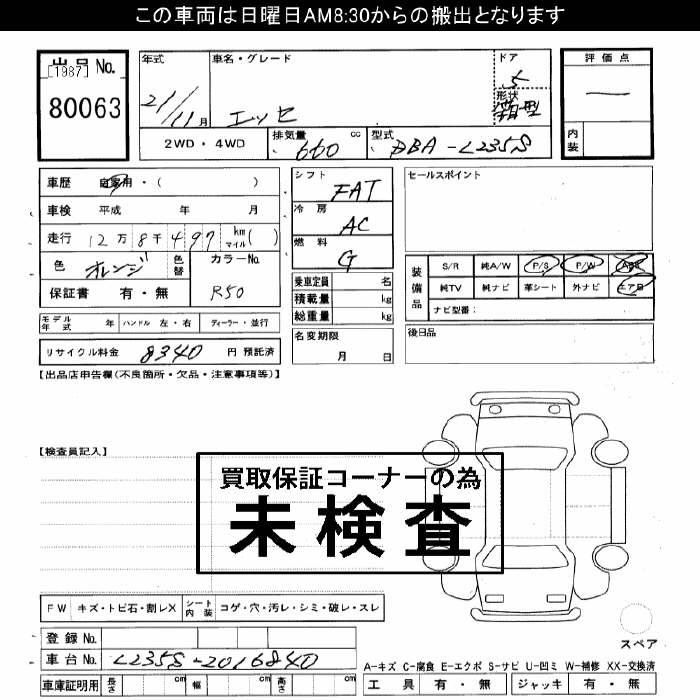 この車両は日曜日AM8:30からの搬出となります
出品No.
[1987]
80063
年式
21/11月
車名・グレード
エッセ
ドア
5
形状
箱型
評価点
—
内装
2WD・4WD
排気量 660 cc
型式 DBA-L235S
車歴 自家用・( )
車検 平成 年 月
走行 12万8千497 km マイル( )
色 オレンジ 色替
カラーNo. R50
保証書 有・無
モデル年式 年 ハンドル 左・右 ディーラー・並行
リサイクル料金 8340 円 預託済
シフト FAT
冷房 AC
燃料 G
乗車定員 名
積載量 kg
総重量 kg
名変期限
月 日
セールスポイント
装備品
S/R 純A/W P/S P/W ABS
純TV 純ナビ 革シート 外ナビ エアB
ナビ型番:
後日品
【出品店申告欄(不良箇所・欠品・注意事項等)】
【検査員記入】
買取保証コーナーの為
未検査
FW キズ・トビ石・割レX シート内装 コゲ・穴・汚レ・シミ・破レ・スレ
登録No.
車台No. L235S-2016840
車庫証明用 長さ cm 幅 cm 高さ cm
スペア
A-キズ C-腐食 E-エクボ S-サビ U-凹ミ W-補修 XX-交換済
工具 有・無 ジャッキ 有・無